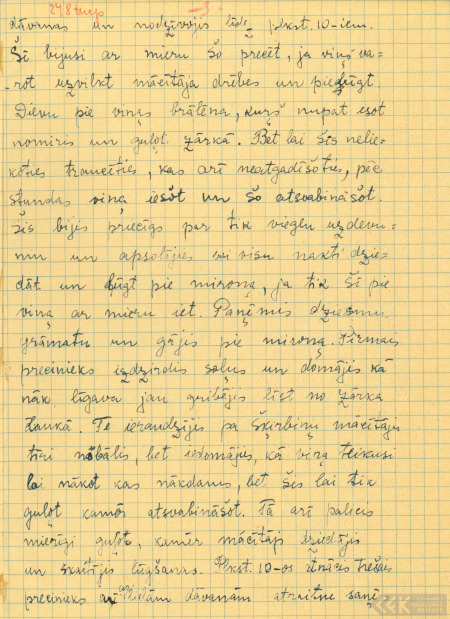 - 3 -
dāvanas un nodzīvojis līdz plkst. 10-iem.
Šī bijusi ar mieru šo precēt, ja viņš va-
rot uzvilkt mācītāja drēbes un pielūgt
Dievu pie viņas brālēna, kurš nupat esot
nomiris un guļot zārkā. Bet lai šis nelie-
koties traucēties, kas arī neatgadīšoties, pēc
stundas viņa iešot un šo atsvabināšot.
Šis bijis priecīgs par tik vieglu uzdevu-
mu un apsolījies vai visu nakti dzie-
dāt un lūgt pie miroņa, ja tik šī pie
viņa ar mieru iet. Paņēmis dziesmu
grāmatu un gājis pie miroņa. Pirmais
precinieks izdzirdis soļus un domājis kā
nāk līgava jau gribējis līst no zārka
laukā. Te ieraudzījis pa šķirbiņu mācītājs
tīri nobālis, bet iedomājies, kā viņa teikusi
lai nākot kas nākdams, bet šis lai tik
guļot kamēr atsvabināšot. Tā arī palicis
mierīgi guļot, kamēr mācītājs dziedājis
un skaitījis lūgšanas. Plkst. 10-os ienācis trešais
precinieks ar lielām dāvanām atraitne saņē